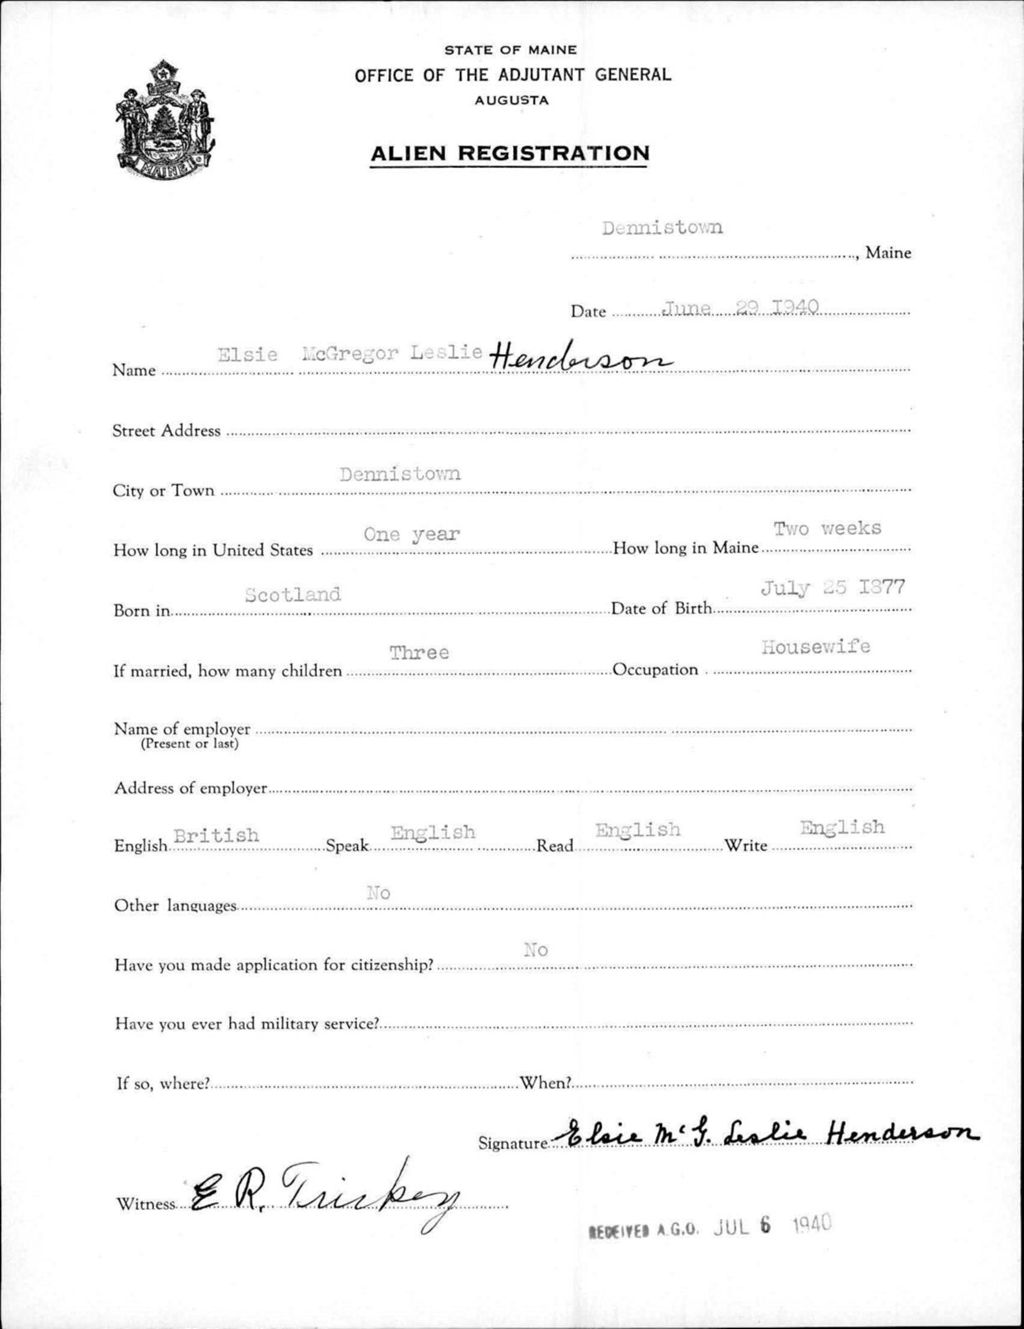 STATE OF MAINE
OFFICE OF THE ADJUTANT GENERAL
AUGUSTA
ALIEN REGISTRATION
MAINE
Dennistown
, Maine
Date June 29 I940
Name Elsie McGregor Leslie Henderson
Street Address
City or Town Dennistown
How long in United States One year How long in Maine Two weeks
Born in Scotland Date of Birth July 25 I877
If married, how many children Three Occupation Housewife
Name of employer
(Present or last)
Address of employer
English British Speak English Read English Write English
Other languages No
Have you made application for citizenship? No
Have you ever had military service?
If so, where? When?
Signature Elsie McG. Leslie Henderson
Witness E R. Trickey
RECEIVED A.G.O. JUL 6 1940